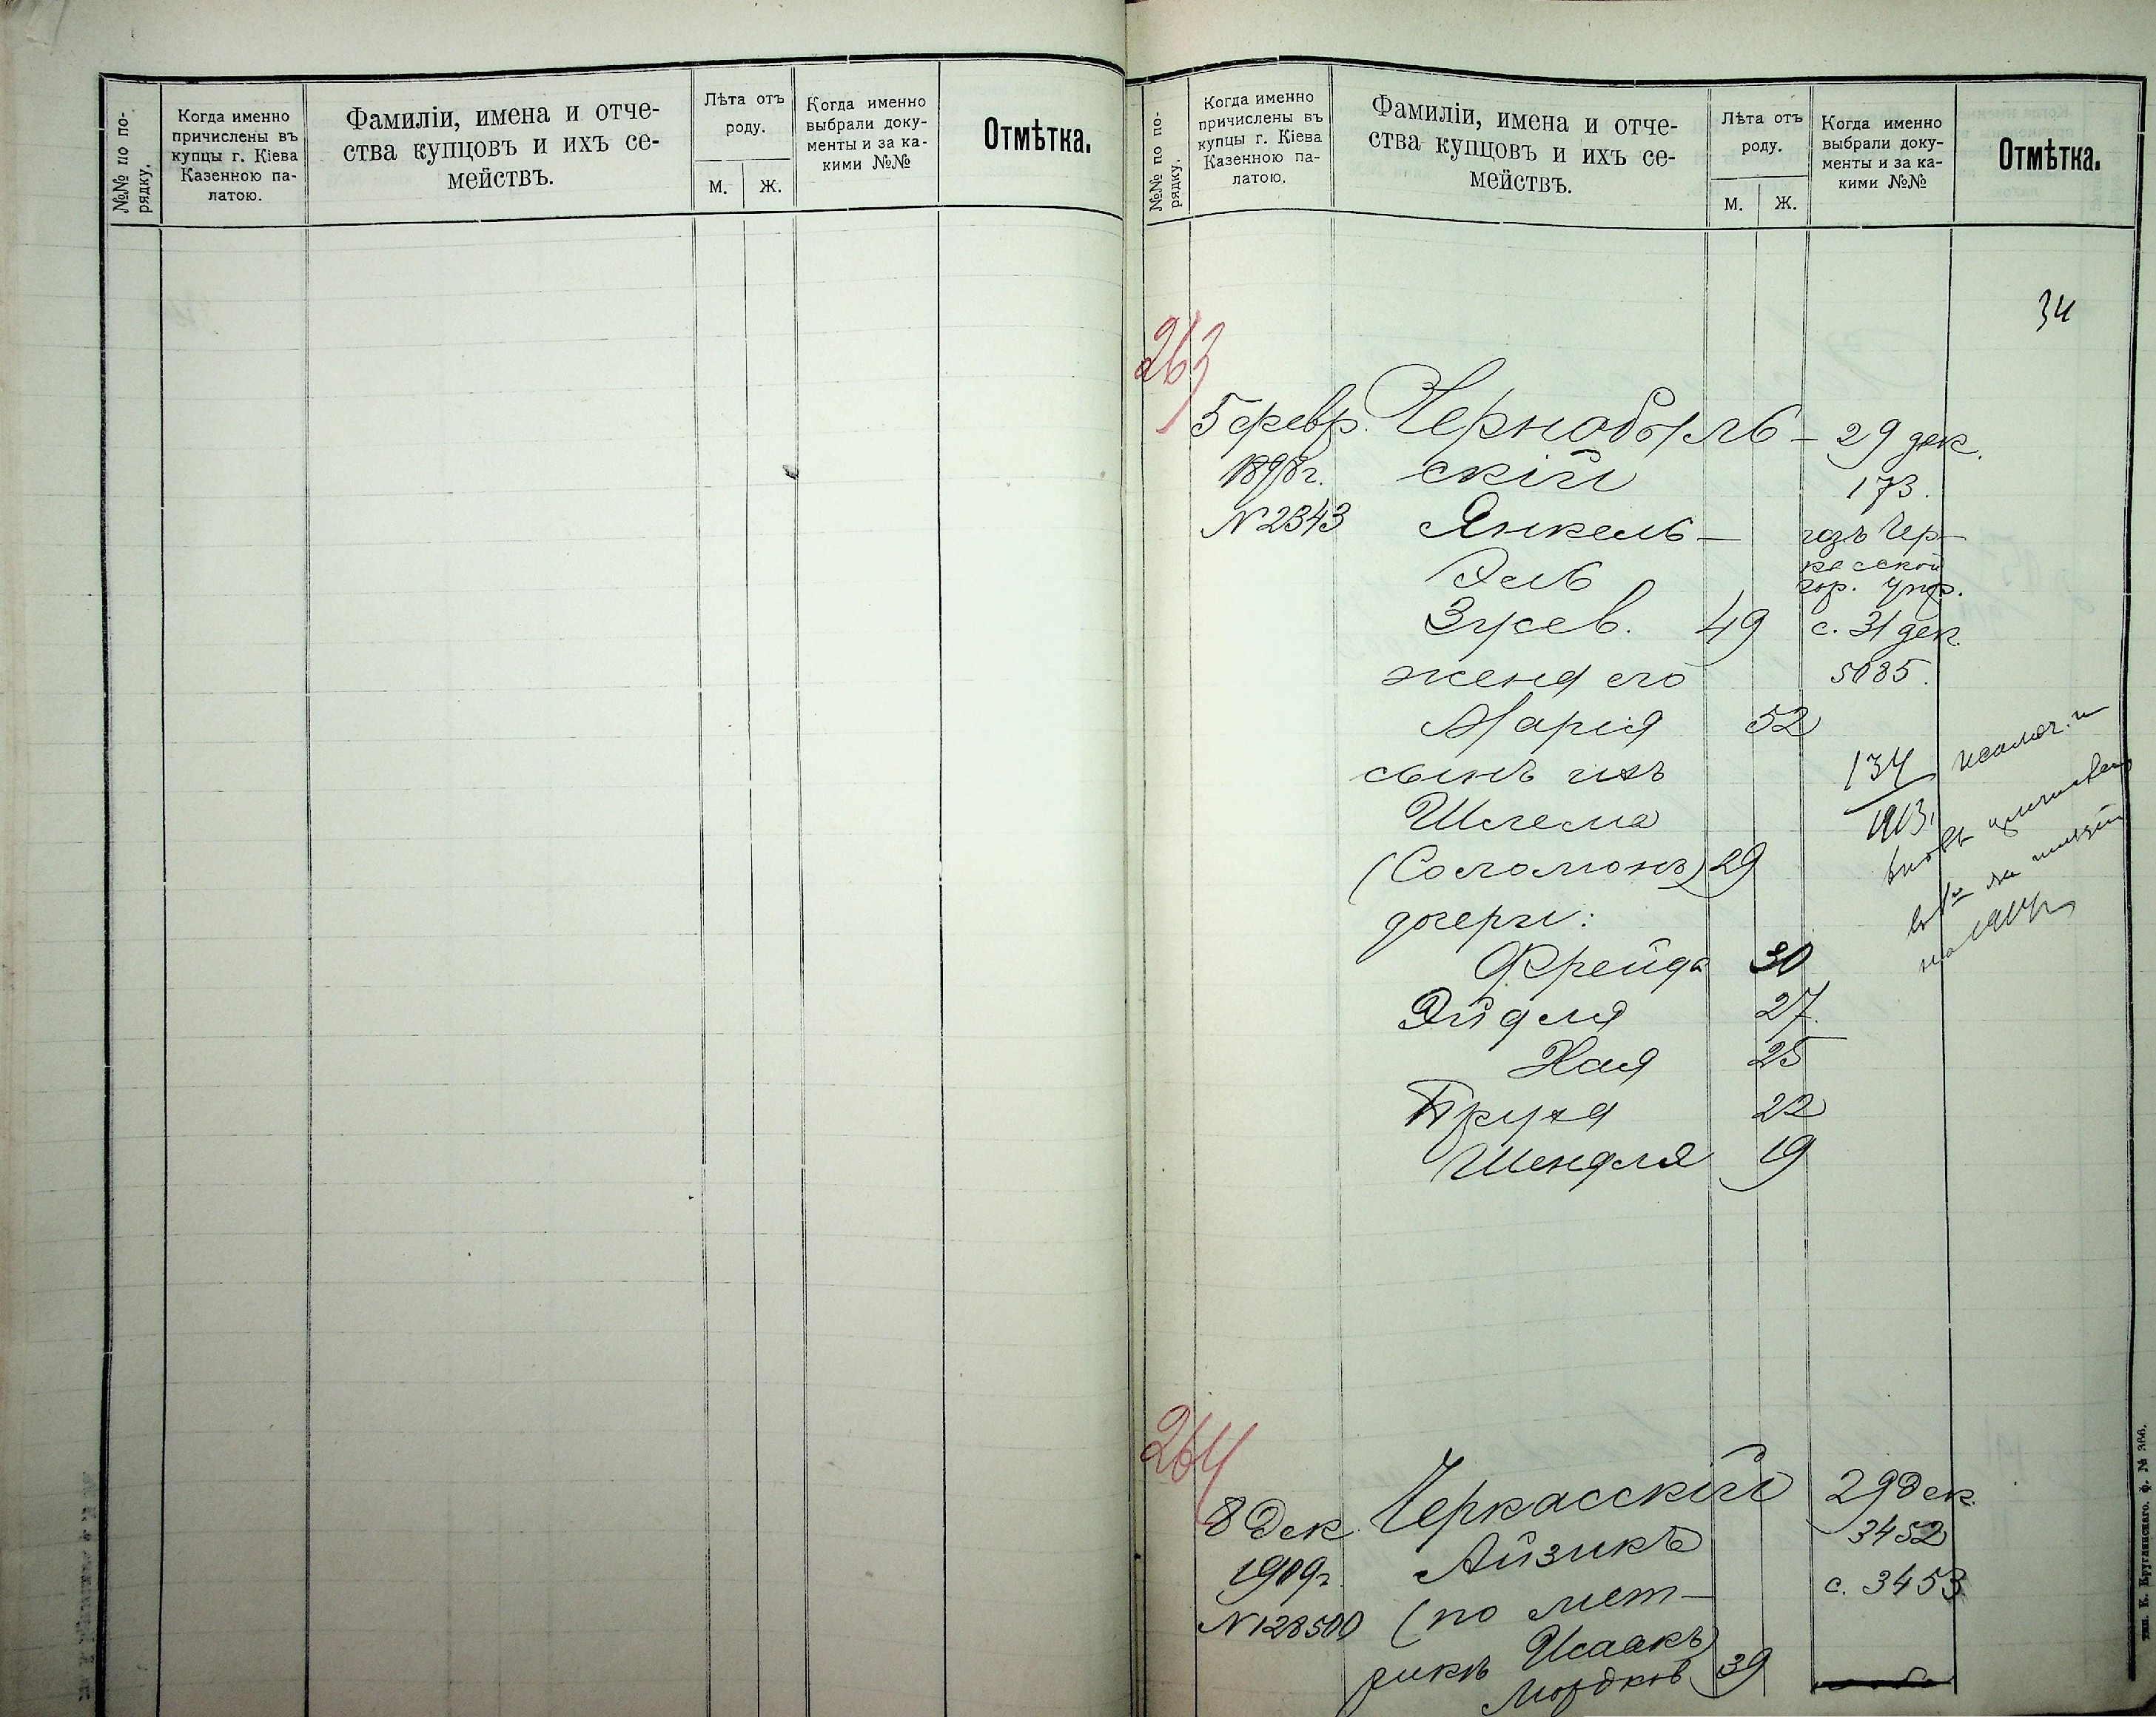 №№ по по-
рядку.
Когда именно
причислены въ
купцы г. Кіева
Казенною па-
латою.
Фамиліи, имена и отче-
ства купцовъ и ихъ се-
мействъ.
Лѣта отъ
роду.
М.
Ж.
Когда именно
выбрали доку-
менты и за ка-
кими №№
Отмѣтка.
№№ по по-
рядку.
Когда именно
причислены въ
купцы г. Кіева
Казенною па-
латою.
Фамиліи, имена и отче-
ства купцовъ и ихъ се-
мействъ.
Лѣта отъ
роду.
М.
Ж.
Когда именно
выбрали доку-
менты и за ка-
кими №№
Отмѣтка.
34
263
5 февр.
1898 г.
N 2343
Чернобыль-
скій
Янкель-
Эль
Зусев. 49
жена его
Марія 52
сынъ ихъ
Шлема
(Соломонъ) 29
дочери:
Фрейда 30
Эйдля 27
Хая 25
Бруха 22
Шендля 19
29 дек.
173.
изъ Чер-
касской
гор. упр.
с. 31 дек.
5085.
134
1913
вновь
на 1914 г.
264
8 Дек.
1909 г.
N 128500
Черкасскій
Айзикъ
(по мет-
рикѣ Исаакъ)
Мордков 39
29 Дек.
3452
с. 3453
тип. К. Круглянскаго, ф. № 366.